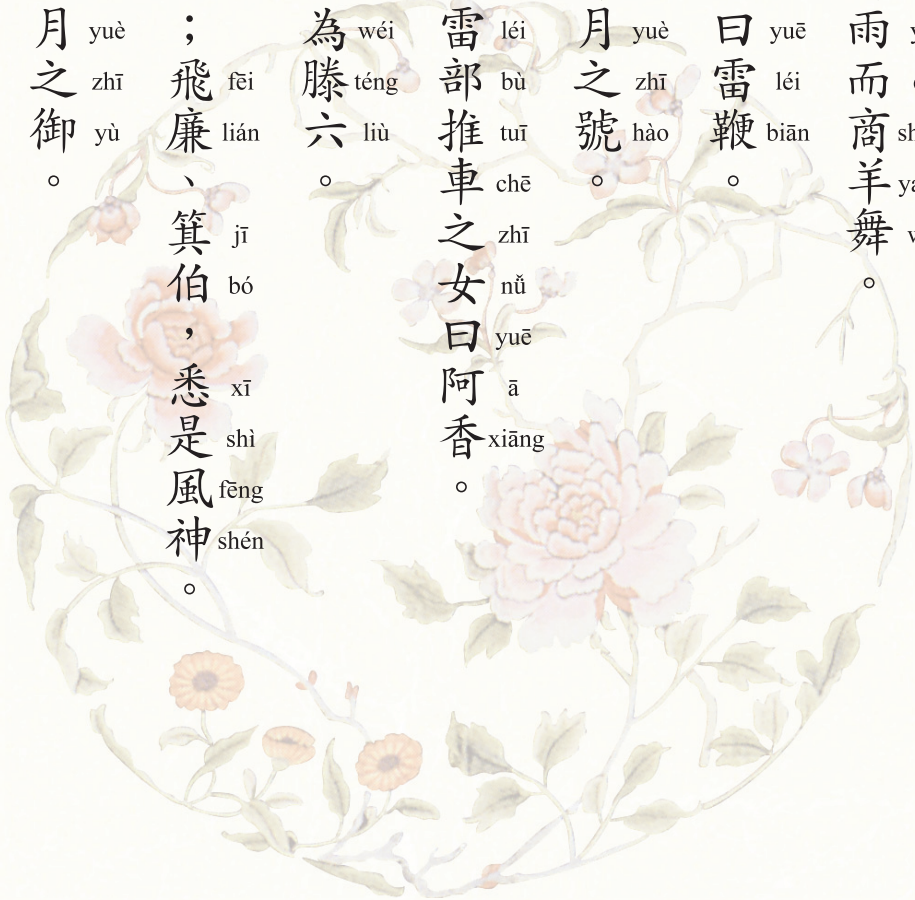 雨而商羊舞。
曰雷鞭。 yuē léi biān
月之號。 yuè zhī hào
雷部推車之女曰阿香。 léi bù tuī chē zhī nǚ yuē ā xiāng
為滕六。 wéi téng liù
;飛廉、箕伯,悉是風神。 fēi lián jī bó xī shì fēng shén
月之御。 yuè zhī yù